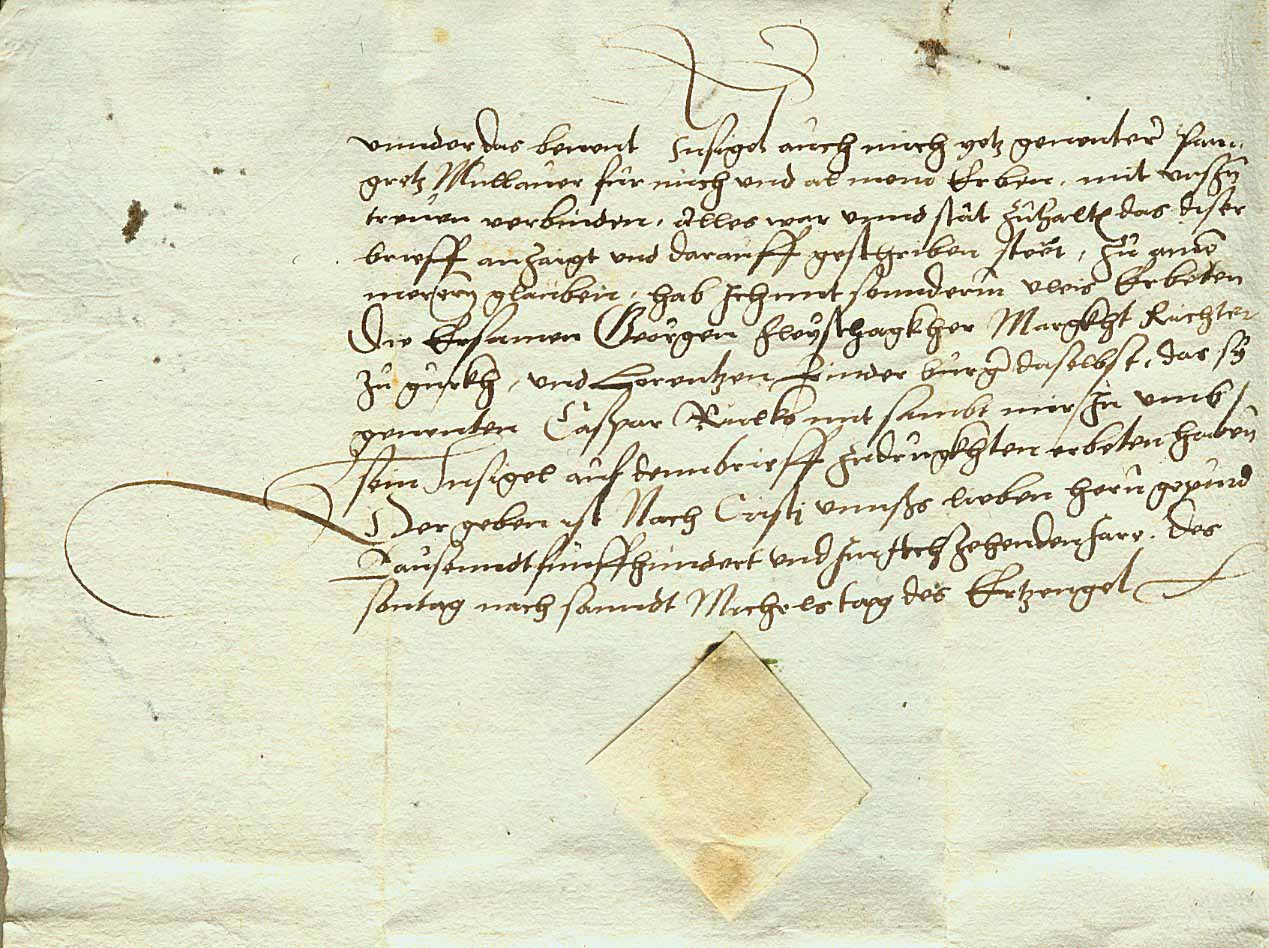 vnnder das benent Insigel auch mich yetz genenter Pan-
gretz Mullauer für mich vnd al mein Erben, mit vnsern
treuen verbinden, Alles war vnnd stät zuhalten das diser
brieff anzaigt vnd darauff geschriben steet, Zu
merern glauben, hab Ich mit sonnderm vleis Erbeten
Die Ersamen Georgen fleyschagkher Margkht Richter
Zu gurkh, vnd Lorentzen Pinder burger daselbst, das sy
genenten Caspar mit sambt mir In vmb
sein Insigel auf denn brieff Zudrugkhten erbeten haben
Der geben ist Nach Cristi vnnsers lieben herrn gepurd
Tausenndt fünffhundert vnd Im Jar, des
sontag nach sanndt Michels tag des Ertzengel